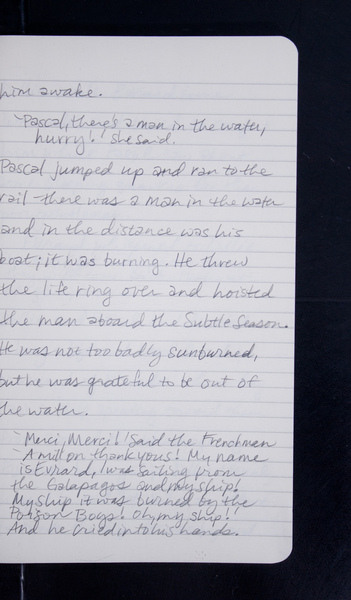 him awake.
'Pascal, there's a man in the water,
hurry!' she said.
Pascal jumped up and ran to the
rail - there was a man in the water
and in the distance was his
boat; it was burning. He threw
the life ring over and hoisted
the man aboard the Subtle Season.
He was not too badly sunburned,
but he was grateful to be out of
the water.
'Merci, Merci!' Said the Frenchman
'A million thank yous! My name
is Evrard, I was sailing from
the Galapagos and my ship!
My ship it was burned by the
Poison Boys! Oh, my ship!'
And he cried into his hands.